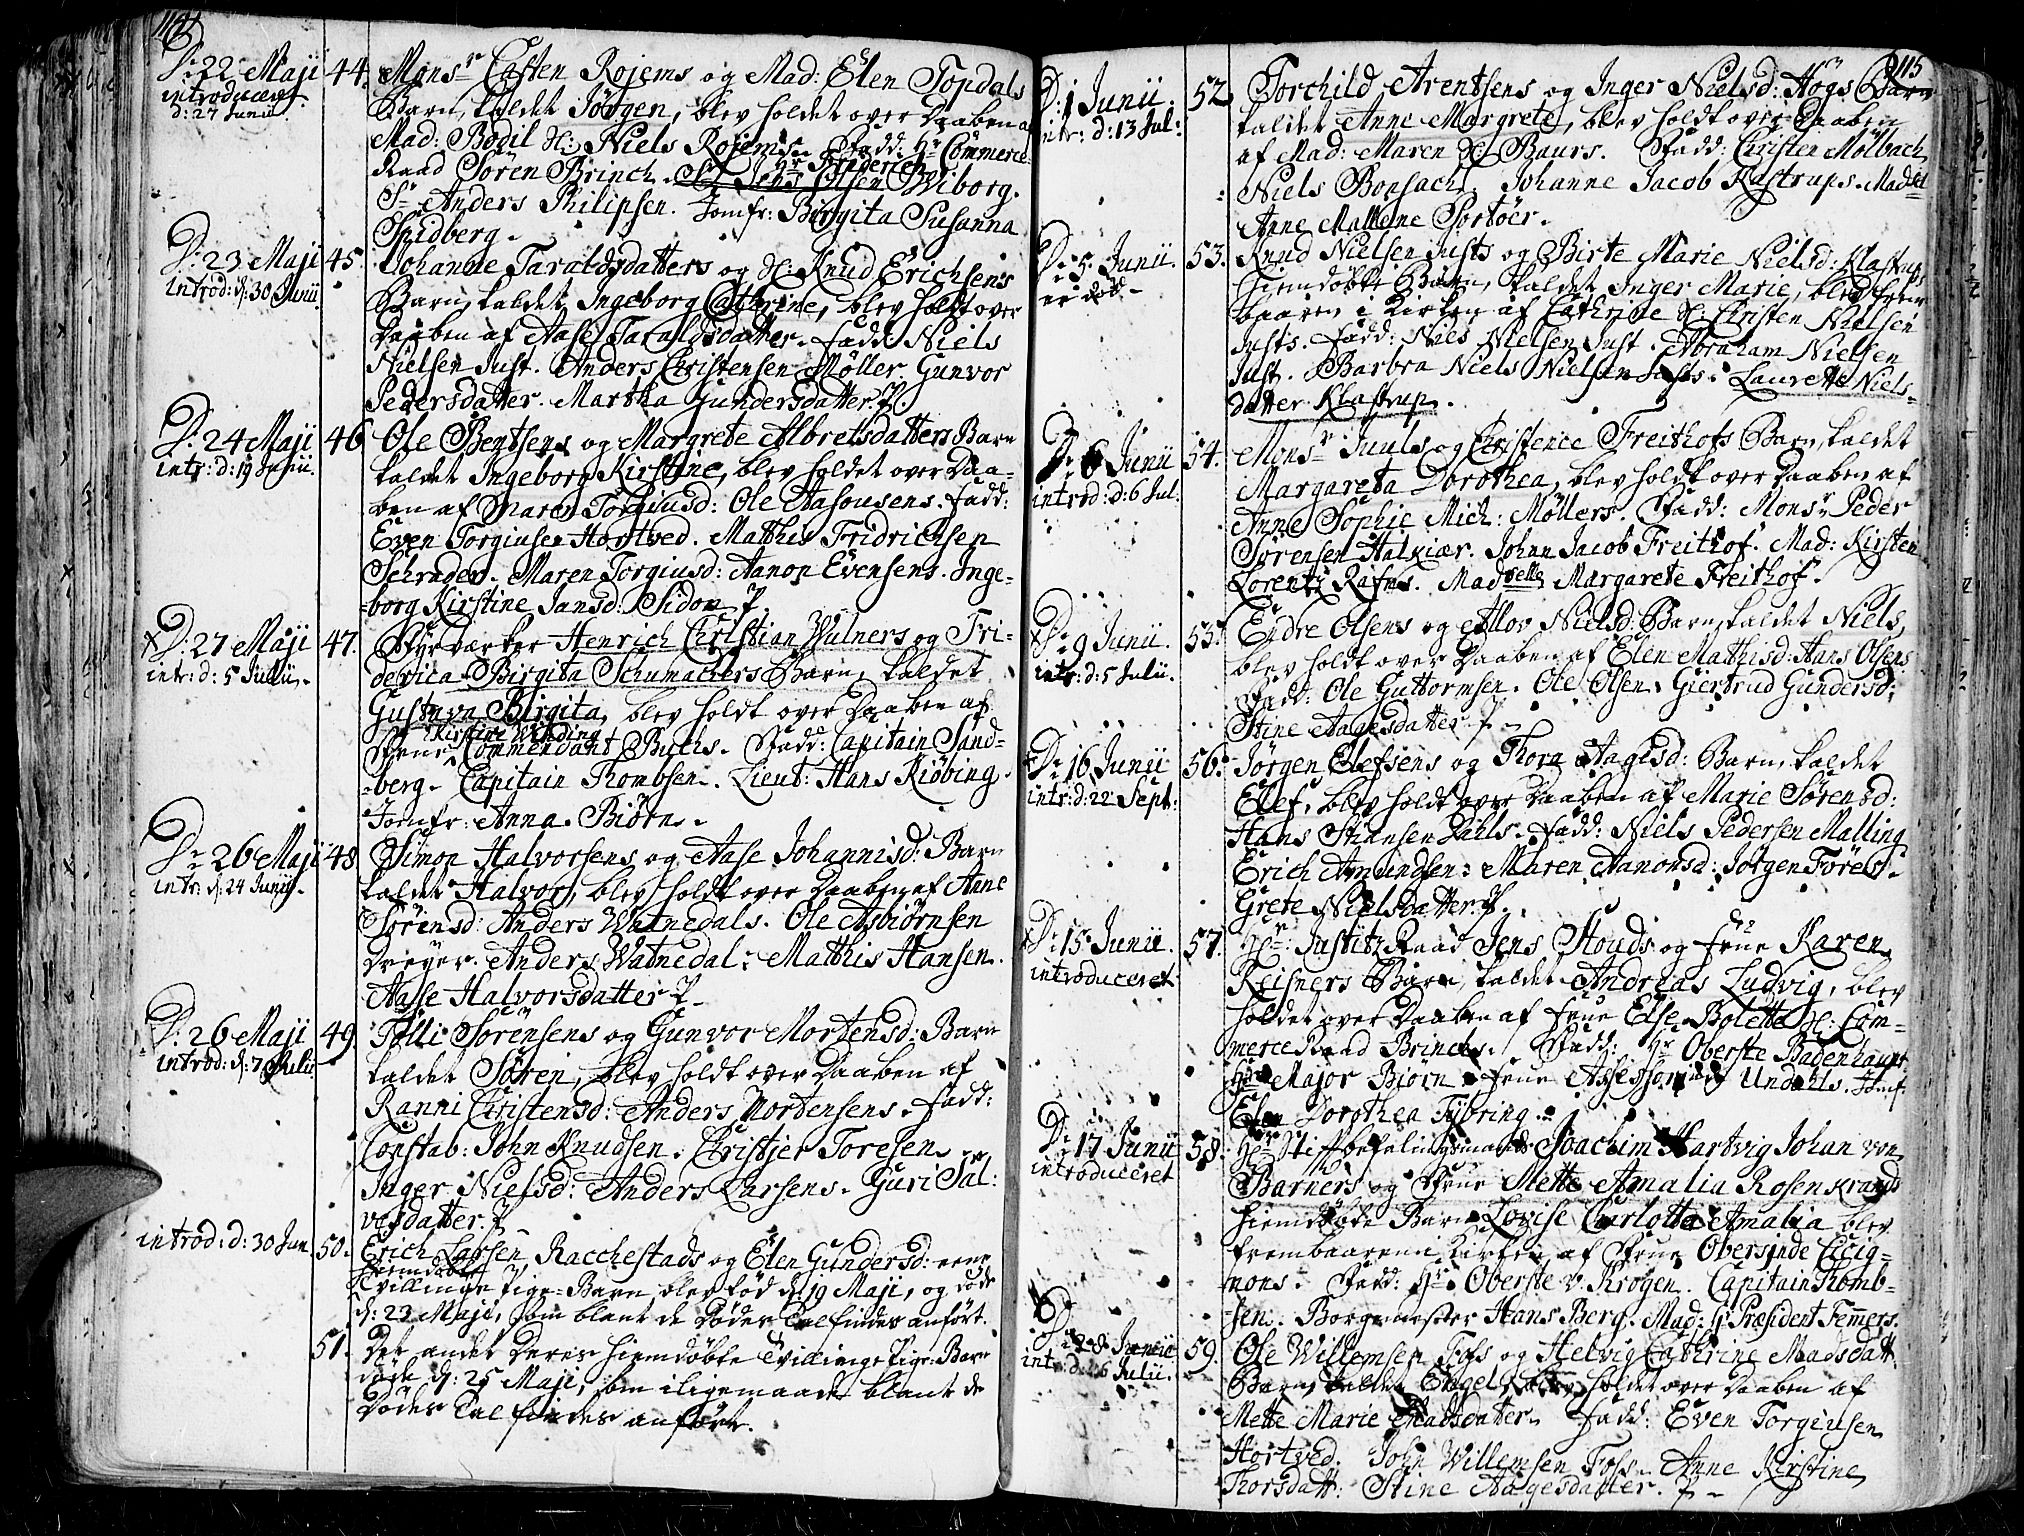 114
D: 22 Maji 44. Mons:r Casten Rojems og Mad: Elen Topdals
introduceret Barn, kaldet Jörgen, blev holdet over Daaben af
d: 27 Junii Mad: Bodil Sl: Niels Rojems. Fadd: Hr Commerce
Raad Sören Brinch. Hr Friderich Wiborg.
Sr Anders Philipsen. Jomfr: Birgita Susanna
Sundberg.
D: 23 Maji 45. Johanne Taraldsdatters og Sl: Knud Erichsens
introd: d: 30 Junii Barn, kaldet Ingeborg Cathrine, blev holdt over
Daaben af Aase Taraldsdatter. Fadd: Niels
Nielsen Just. Anders Christensen Möller. Gunvor
Pedersdatter. Martha Gundersdatter.
D: 24 Maji 46 Ole Bentsens og Margrete Albretsdatters Barn
intr: d: 19 Junii. kaldet Ingeborg Kirstine, blev holdet over Daa-
ben af Maren Torgiusd: Ole Aasousens. Fadd:
Even Torgiusen Hortved. Matthis Fridrichsen
Schrader. Maren Torgiusd: Aanon Evensens. Inge-
-borg Kirstine Jansd: Sidon
x D: 27 Maji 47. Fyrværker Henrich Christian Wulners og Fri-
intr: d: 5 Julii. derica Birgita Schumachers Barn, kaldet
Gustava Birgita, blev holdt over Daaben af
Kirstine Winding
Frue Commendant Buchs. Fadd: Capitain Sand-
-berg. Capitain Thombsen. Lieut: Hans Kiöbing.
Jomfr: Anna Biörn.
D: 26 Maji 48 Simon Halvorsens og Aase Johannisd: Barn
intr: d: 24 Junii. kaldet Halvor, blev holdt over Daaben af Anne
Sörensd: Anders Watnedals. Ole Asbiörnsen
Dreyer. Anders Watnedal: Matthis Hansen.
Aasse Halvorsdatter
D: 26 Maji 49. Tolli Sörensens og Gunvor Mortensd: Barn
introd: d: 7 Julii. kaldet Sören, blev holdt over Daaben af
Ranni Christensd: Anders Mortensens. Fadd:
Constab: John Knudsen. Christjer Toresen.
Inger Nielsd: Anders Larsens. Guri Sal:
vesdatter.
introd: d: 30 Jun. 50. Erich Larsen Racchestads og Elen Gundersd: eene
hiemdöbte
Tvillinge Pige-Barn, blev föd d: 19 Maji, og döde
d: 23 Maji, som blant de Dödes Tal findes anfört.
51. Det andet Deres hiemdöbte Tvillinge Pige-Barn
döde d: 25 Maji, som iligemaade blant de
Dödes Tal findes anfört.
115
D: 1 Junii. 52. Torchild Arentsens og Inger Nielsd: Högs Barn
intr: d: 13 Jul: kaldet Anne Margrete, blev holdt over Daaben
af Mad: Maren Sl: Baurs. Fadd: Christen Mölbach
Niels Bonsach. Johanne Jacob Kastrups. Madsel
Anne Mallene Portöer.
D: 5 Junii. 53. Knud Nielsen Justs og Birte Marie Nielsd: Klastrup
er död hiemdöbte Barn, kaldet Inger Marie, blev frem
baaren i Kirken af Cathrine Sl: Christen Nielsen
Justs. Fadd: Niels Nielsen Just. Abraham Nielsen
Just. Barbra Niels Nielsen Justs. Laurette Niels-
datter Klastrup.
D: 6 Junii 54. Mons:r Juuls og Christence Freithofs Barn, kaldet
introd: d: 6 Jul: Margareta Dorothea, blev holdt over Daaben af
Anne Sophie Mich: Möllers. Fadd: Mons:r Peder
Sörensen Halkiær. Johan Jacob Freithof. Mad: Kirsten
Lorentz Rafns. Madselle Margarete Freithof.
x D: 9 Junii. 55. Endre Olsens og Allov Nielsd: Barn, kaldet Niels,
intr: d: 5 Julii. blev holdt over Daaben af Elen Mathisd: Hans Olsens
Fadd: Ole Guttormsen. Ole Olsen. Giertrud Gundersd:
Stine Aagesdatter.
D: 16 Junii 56. Jörgen Elefsens og Thora Aagesd: Barn, kaldet
intr: d: 22 Sept: Elef, blev holdt over Daaben af Marie Sörensd:
Hans Dahls. Fadd: Niels Pedersen Malling
Erich Amundsen: Maren Aanonsd: Jörgen Töres.
Grete Nielsdatter.
x D: 15 Junii. 57. Hr: Justitz Raad Jens Stouds og Frue Karen
introduceret Reisners Barn, kaldet Andreas Ludvig, blev
holdet over Daaben af Frue Else Bolette Sl: Com-
merce Raad Brinchs. Fadd: Hr Oberste Badenhaupt
Hr Major Biörn. Frue Assessorinde Undahls. Jomf:
Elen Dorothea Tybring.
D: 17 Junii 58. Hr Stiftbefalingsmand Joachim Hartvig Johan von
introduceret Barners og Frue Mette Amalia Rosenkrands
hiemdöbte Barn Lovise Charlotta Amalia blev
frembaaren i Kirken af Frue Obersinde Cicig-
nons. Fadd: Hr Oberste v. Krogen. Capitain Thomb-
-sen. Borgmester Hans Berg. Mad: Præsident Femers.
D: 28 Junii 59. Ole Willemsen Foss og Helvig Cathrine Madsdatt.
intr: d: 26 Julii. Barn, kaldet Engel, blev holdet over Daaben af
Mette Marie Madsdatter. Fadd: Even Torgiusen
Hortved. John Willemsen Foss. Anne Kirstine
Thorsdatt: Stine Aagesdatter.